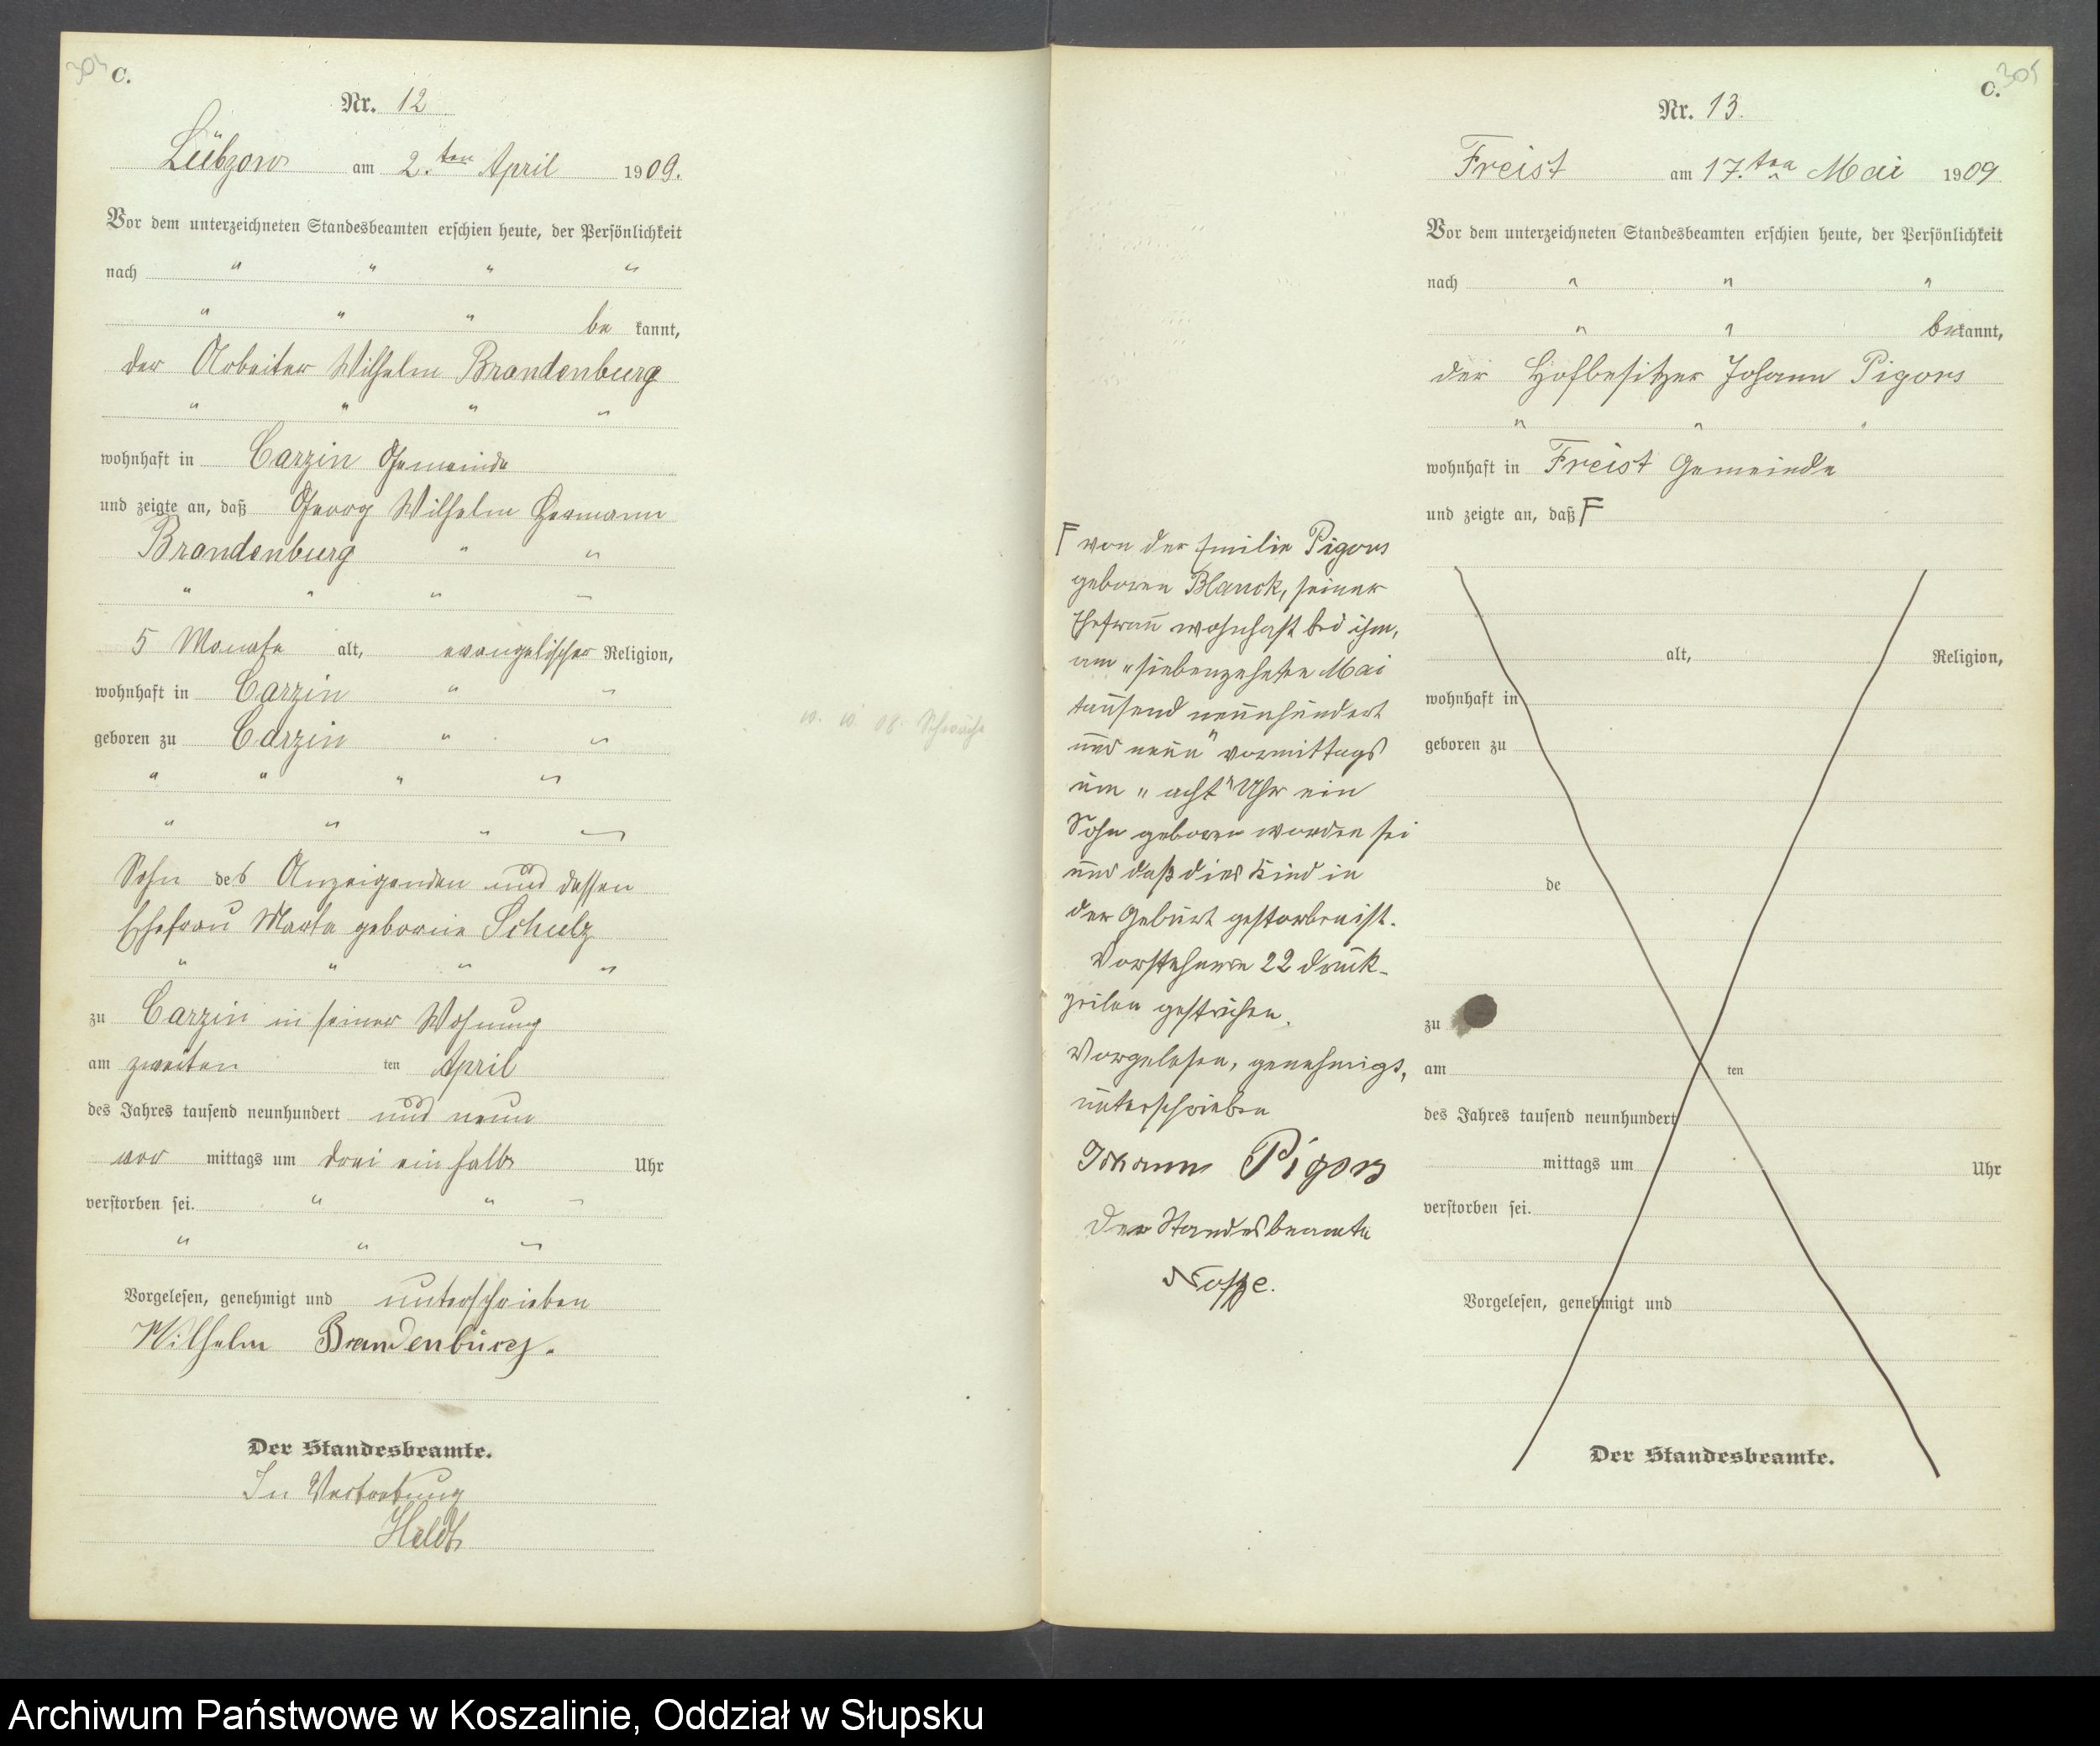 304
C.
Nr. 12
Lübzow am 2.ten April 1909.
Vor dem unterzeichneten Standesbeamten erschien heute, der Persönlichkeit
nach " " " "
" " " be kannt,
der Arbeiter Wilhelm Brandenburg
" " " "
wohnhaft in Carzin Gemeinde
und zeigte an, daß Georg Wilhelm Hermann
Brandenburg " "
" " " "
5 Monate alt, evangelischer Religion,
wohnhaft in Carzin " "
geboren zu Carzin " "
" " " "
" " " "
Sohn des Anzeigenden und dessen
Ehefrau Marta geborene Schulz
" " " "
zu Carzin in seiner Wohnung
am zweiten ten April
des Jahres tausend neunhundert und neun
vor mittags um drei ein halb Uhr
verstorben sei. " " "
" " "
Vorgelesen, genehmigt und unterschrieben
Wilhelm Brandenburg.
Der Standesbeamte.
In Vertretung
Heldt
08. Schwäche
C. 305
Nr. 13.
Freist am 17.ten Mai 1909
Vor dem unterzeichneten Standesbeamten erschien heute, der Persönlichkeit
nach " " "
" " bekannt,
der Hofbesitzer Johann Pigors
" " "
wohnhaft in Freist Gemeinde
und zeigte an, daß F
F von der Emilie Pigors
geboren Blanck, seiner
Ehefrau wohnhaft bei ihm,
am „siebenzehnten Mai
tausend neunhundert
und neun" vormittags
um „acht" Uhr ein
Sohn geboren worden sei
und daß dies Kind in
der Geburt gestorben ist.
Vorstehende 22 Druck-
zeilen gestrichen.
Vorgelesen, genehmigt,
unterschrieben
Johann Pigors
Der Standesbeamte
alt, Religion,
wohnhaft in
geboren zu
de
zu
am ten
des Jahres tausend neunhundert
mittags um Uhr
verstorben sei.
Vorgelesen, genehmigt und
Der Standesbeamte.
Archiwum Państwowe w Koszalinie, Oddział w Słupsku